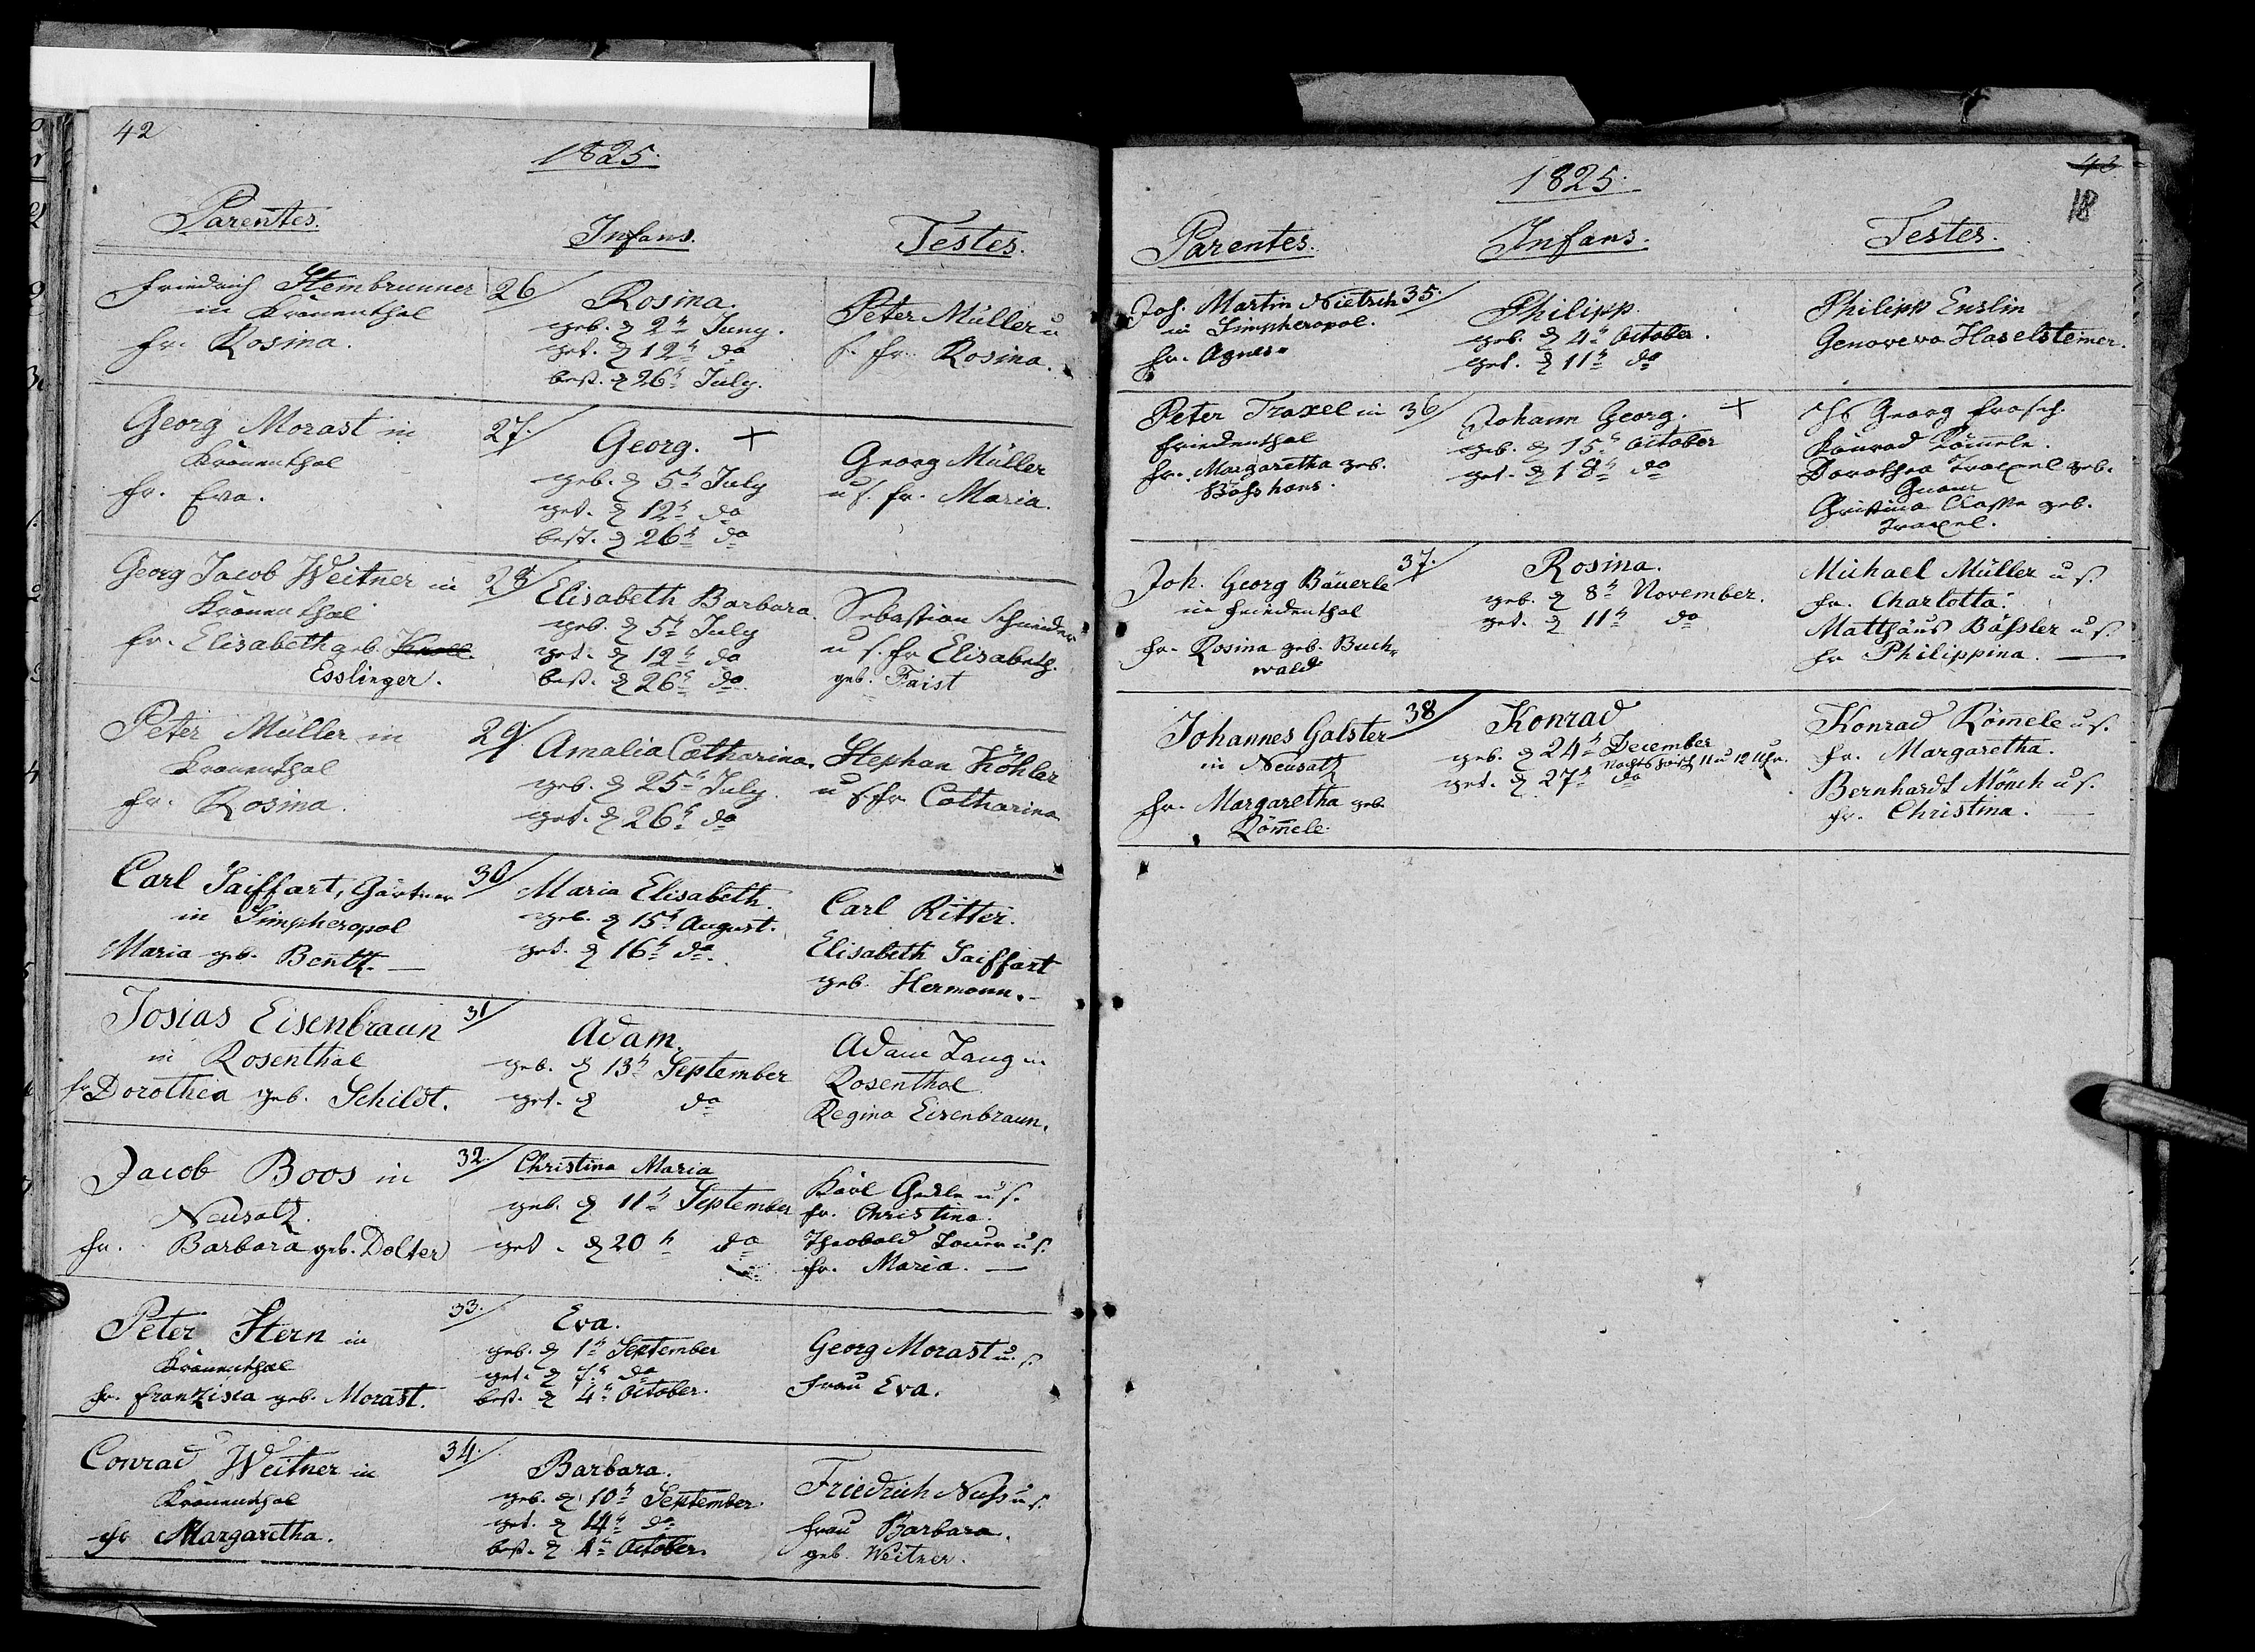 42
1825.
Parentes. Infans. Testes.
Friedrich Stembrunner 26 Rosina. Peter Müller u
in Kronenthal geb. d. 2t Juny. s. fr. Rosina.
fr. Rosina. get. d. 12t do
best. d. 26t July.
Georg Morast in 27. Georg. + Georg Müller
Kronenthal geb. d. 5t July u s. fr. Maria.
fr. Eva. get. d. 12t do
best. d. 26t do
Georg Jacob Weitner in 28 Elisabeth Barbara. Sebastian Schneider
Kronenthal geb. d. 5t July u s. fr Elisabeth.
fr. Elisabeth geb. get. d. 12t do geb. Faist
Esslinger. best. d. 26t do
Peter Müller in 29. Amalia Catharina. Stephan Köhler
Kronenthal geb. d. 25t July. u s. fr. Catharina
fr. Rosina. get. d. 26t do
Carl Saiffart, Gärtner 30 Maria Elisabeth. Carl Ritter.
in Simpheropol geb. d. 15t August. Elisabeth Saiffart
Maria geb. Bentz. get. d. 16t do. geb. Hermann.
Josias Eisenbraun 31 Adam. Adam Lang in
in Rosenthal geb. d. 13t September Rosenthal
fr Dorothea geb. Schildt. get. d. do Regina Eisenbraun.
Jacob Boos in 32. Christina Maria Karl u s.
Neusatz. geb. d. 11t September fr. Christina.
fr. Barbara geb. Dolter get. d. 20t do Theobald u s.
fr. Maria.
Peter Stern in 33. Eva. Georg Morast u. s.
Kronenthal geb. d. 1t September frau Eva.
fr. Franzisca geb. Morast. get. d. 7t do
best. d. 4t October.
Conrad Weitner in 34. Barbara. Friedrich Nuss u s.
Kronenthal geb. d. 10t September. frau Barbara.
fr Margaretha. get. d. 14t do geb. Weitner.
best. d. 4t October.
43
18
1825.
Parentes. Infans. Testes.
Joh. Martin Nietsch 35. Philipp. Philipp Enslin
in Simpheropol. geb. d. 4t October. Genoveva Haselsteiner.
fr. Agnes. get. d. 11t do
Peter Traxel in 36 Johann Georg. + Georg Frosch.
Friedenthal geb. d. 15t October Konrad Römele.
fr. Margaretha geb. get. d. 18t do Dorothea Traxel geb.
Bosshans. Gnam
Christina geb.
Traxel.
Joh. Georg Bäuerle 37. Rosina. Michael Müller u s.
in Friedenthal geb. d. 8t November. fr. Charlotta.
fr. Rosina geb. Buch= get. d. 11t do Matthäus Bässler u s.
wald fr Philippina.
Johannes Galster 38 Konrad Konrad Römele u s.
in Neusatz geb. d. 24t December fr. Margaretha.
Nachts zwisch 11 u 12 Uhr.
fr. Margaretha geb. get. d. 27t do Bernhardt Mönch u s.
Römele. fr. Christina.